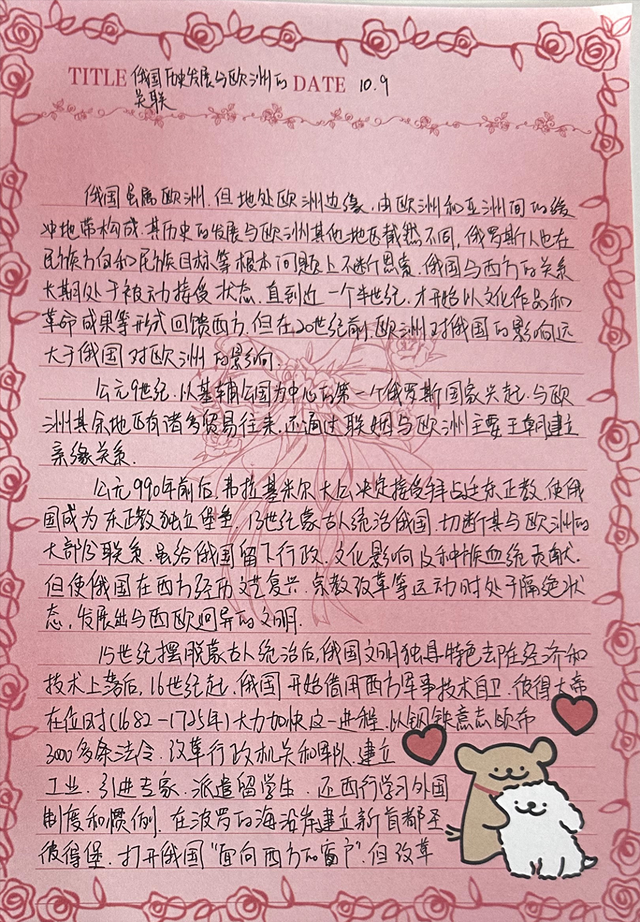 TITLE 俄国历史发展与欧洲的 DATE 10.9
关联
俄国虽属欧洲,但地处欧洲边缘,由欧洲和亚洲间的缓
冲地带构成,其历史的发展与欧洲其他地区截然不同,俄罗斯人也在
民族方向和民族目标等根本问题上不断思索,俄国与西方的关系
长期处于被动接受状态,直到近一个半世纪,才开始以文化作品和
革命成果等形式回馈西方,但在20世纪前,欧洲对俄国的影响远
大于俄国对欧洲的影响.
公元9世纪,以基辅公国为中心的第一个俄罗斯国家兴起,与欧
洲其余地区有诸多贸易往来,还通过联姻与欧洲主要王朝建立
亲缘关系.
公元990年前后,弗拉基米尔大公决定接受拜占廷东正教,使俄
国成为东正教独立堡垒,13世纪蒙古人统治俄国,切断其与欧洲的
大部分联系,虽给俄国留下行政,文化影响及种族血统贡献.
但使俄国在西方经历文艺复兴,宗教改革等运动时处于隔绝状
态,发展出与西欧迥异的文明.
15世纪摆脱蒙古人统治后,俄国文明独具特色却在经济和
技术上落后,16世纪起,俄国开始借用西方军事技术自卫,彼得大帝
在位时(1682-1725年)大力加快这一进程,以钢铁意志颁布
3000多条法令,改革行政机关和军队,建立
工业,引进专家,派遣留学生,还西行学习外国
制度和惯例,在波罗的海沿岸建立新首都圣
彼得堡,打开俄国"面向西方的窗户",但改革